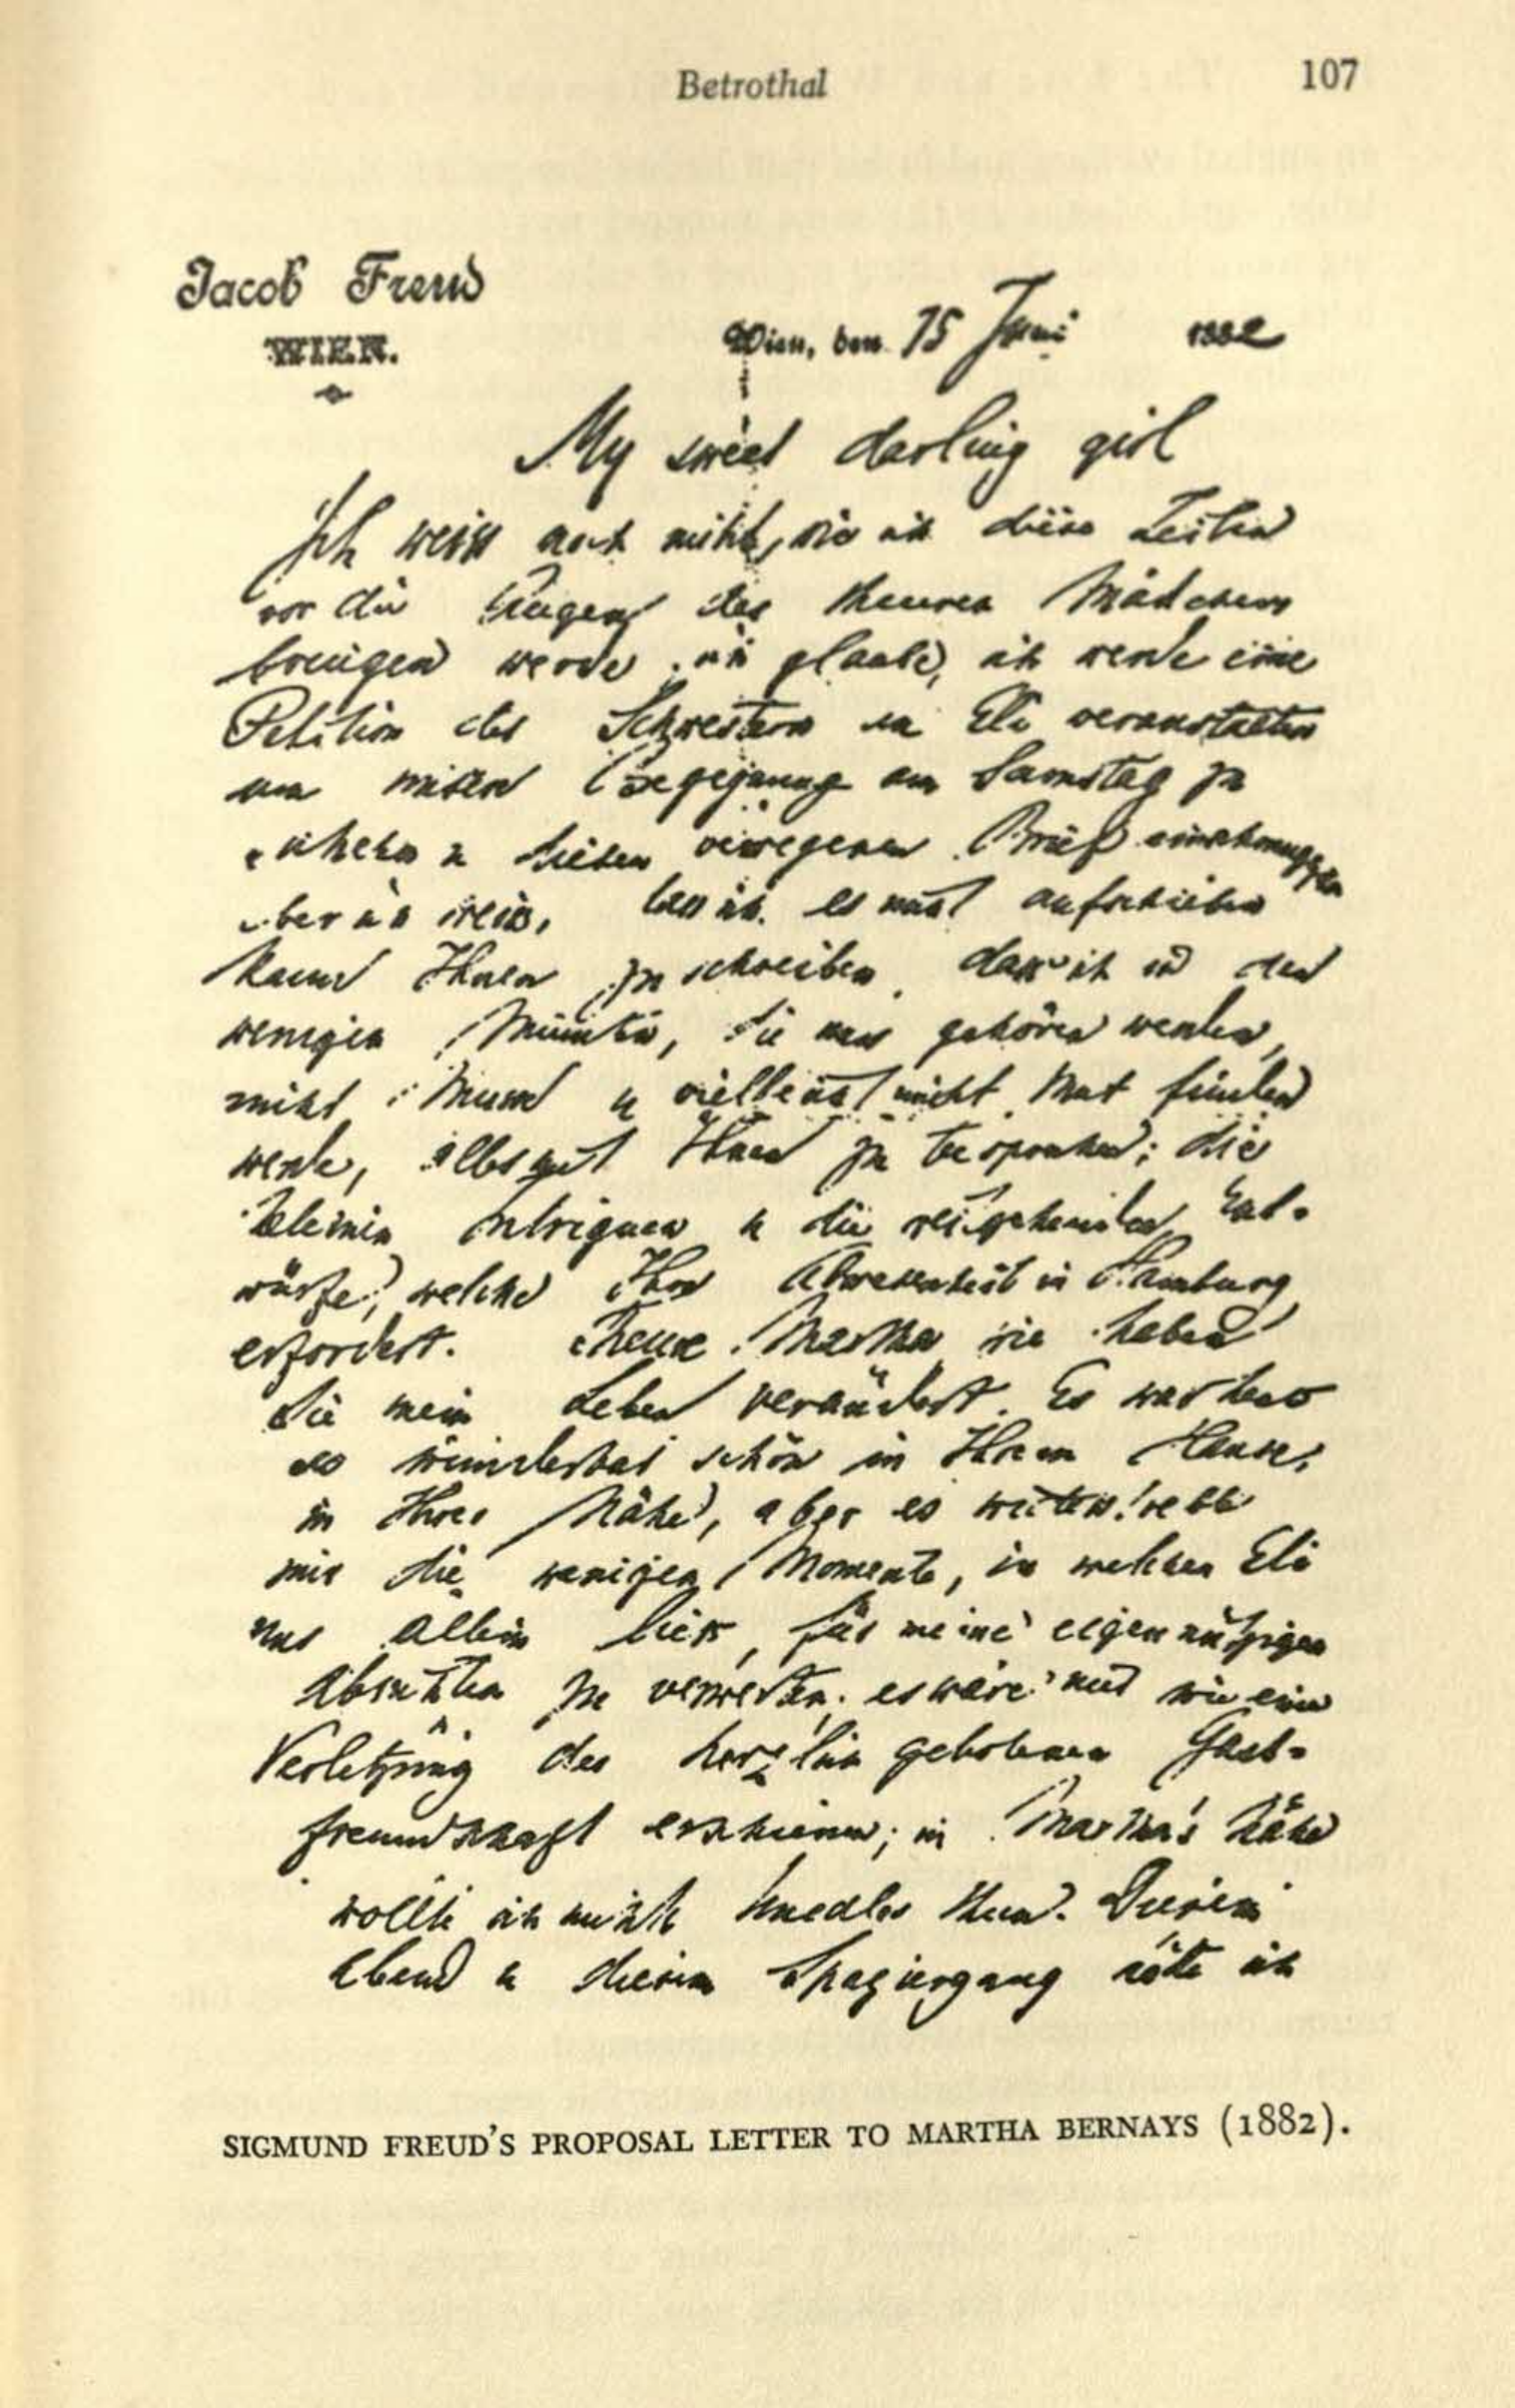 Betrothal 107
Jacob Freud
WIEN.
Wien, den 15 Juni 1882
My sweet darling girl
Ich weiss noch nicht, wie ich diese Zeilen
vor die Augen des theuren Mädchens
bringen werde, ich glaube, ich werde eine
Petition der Schwestern an Eli veranstalten
um Begegnung am Samstag zu
u diesen verwegenen Brief
aber ich weiss, dass ich es nicht aufschieben
kann Ihnen zu schreiben, dass ich in den
wenigen Minuten, die uns gehören werden,
nicht Musse u vielleicht nicht Mut finden
werde, alles mit Ihnen zu besprechen; die
kleinen Intriguen u die weitgehenden Ent-
würfe, welche Ihre Abwesenheit in Hamburg
erfordert. Theure Martha, wie haben
Sie mein Leben verändert. Es war heute
so wunderbar schön in Ihrem Hause,
in Ihrer Nähe, aber es widerstrebte
mir die wenigen Momente, in welchen Eli
uns allein liess, für meine eigennützigen
Absichten zu verwerten, es wäre mir wie eine
Verletzung der herzlich gebotenen Gast-
freundschaft erschienen; in Martha's Nähe
wollte ich nichts Unedles thun. Diesen
Abend u diesen Spaziergang ich
SIGMUND FREUD'S PROPOSAL LETTER TO MARTHA BERNAYS (1882).